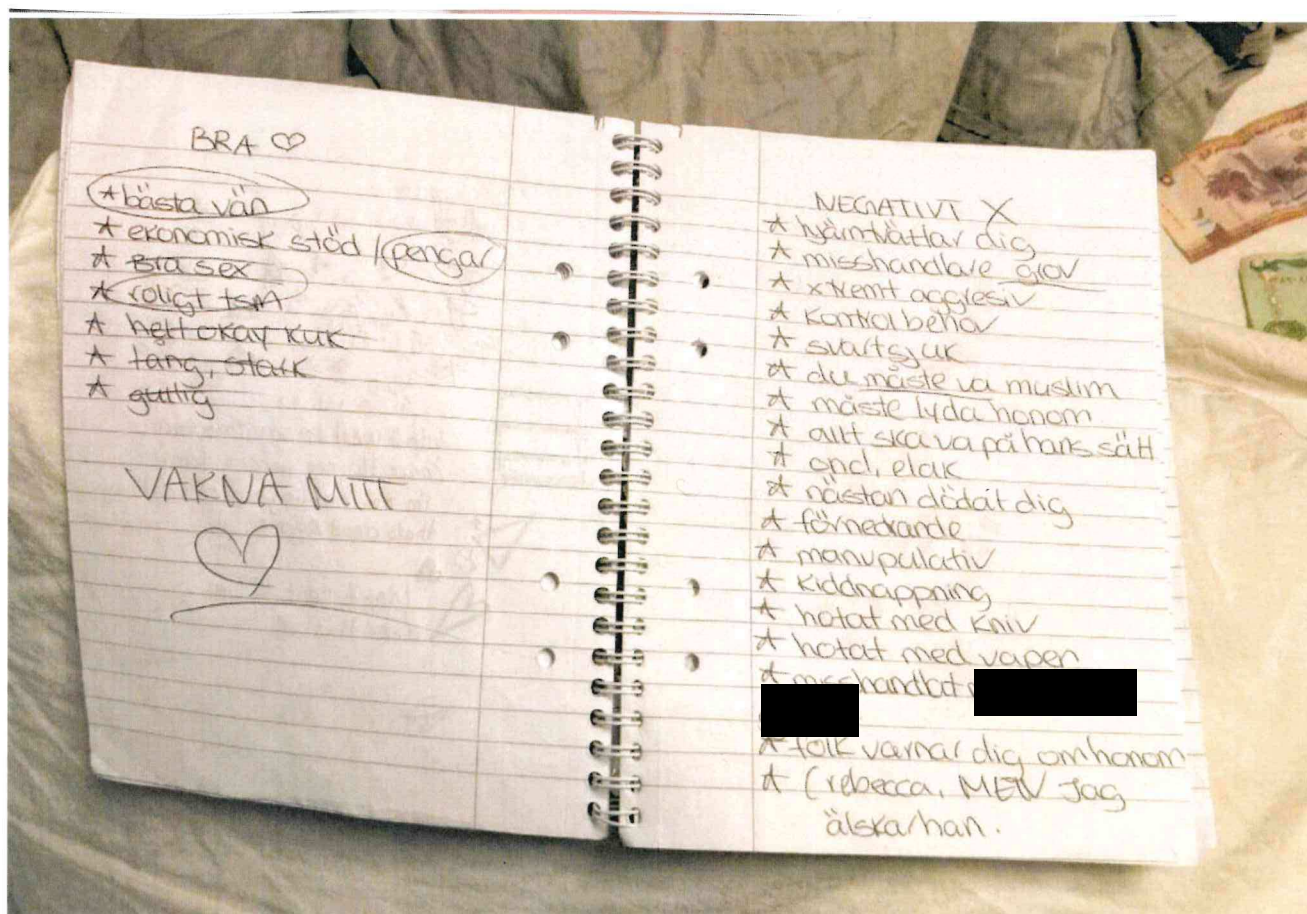 BRA ♡
* bästa vän
* ekonomisk stöd / pengar
* Bra sex
* roligt tsm
* helt okay kuk
* lång, stark
* gullig
VAKNA MITT
♡
NEGATIVT X
* hjärntvättar dig
* misshandlare grov
* xtremt aggresiv
* Kontrol behov
* svartsjuk
* du måste va muslim
* måste lyda honom
* allt ska va på hans sätt
* ond, elak
* nästan dödat dig
* förnedrande
* manupulativ
* Kiddnappning
* hotat med kniv
* hotat med vapen
* misshandlat
* folk varnar dig om honom
* (rebecca, MEN Jag
älskar han.